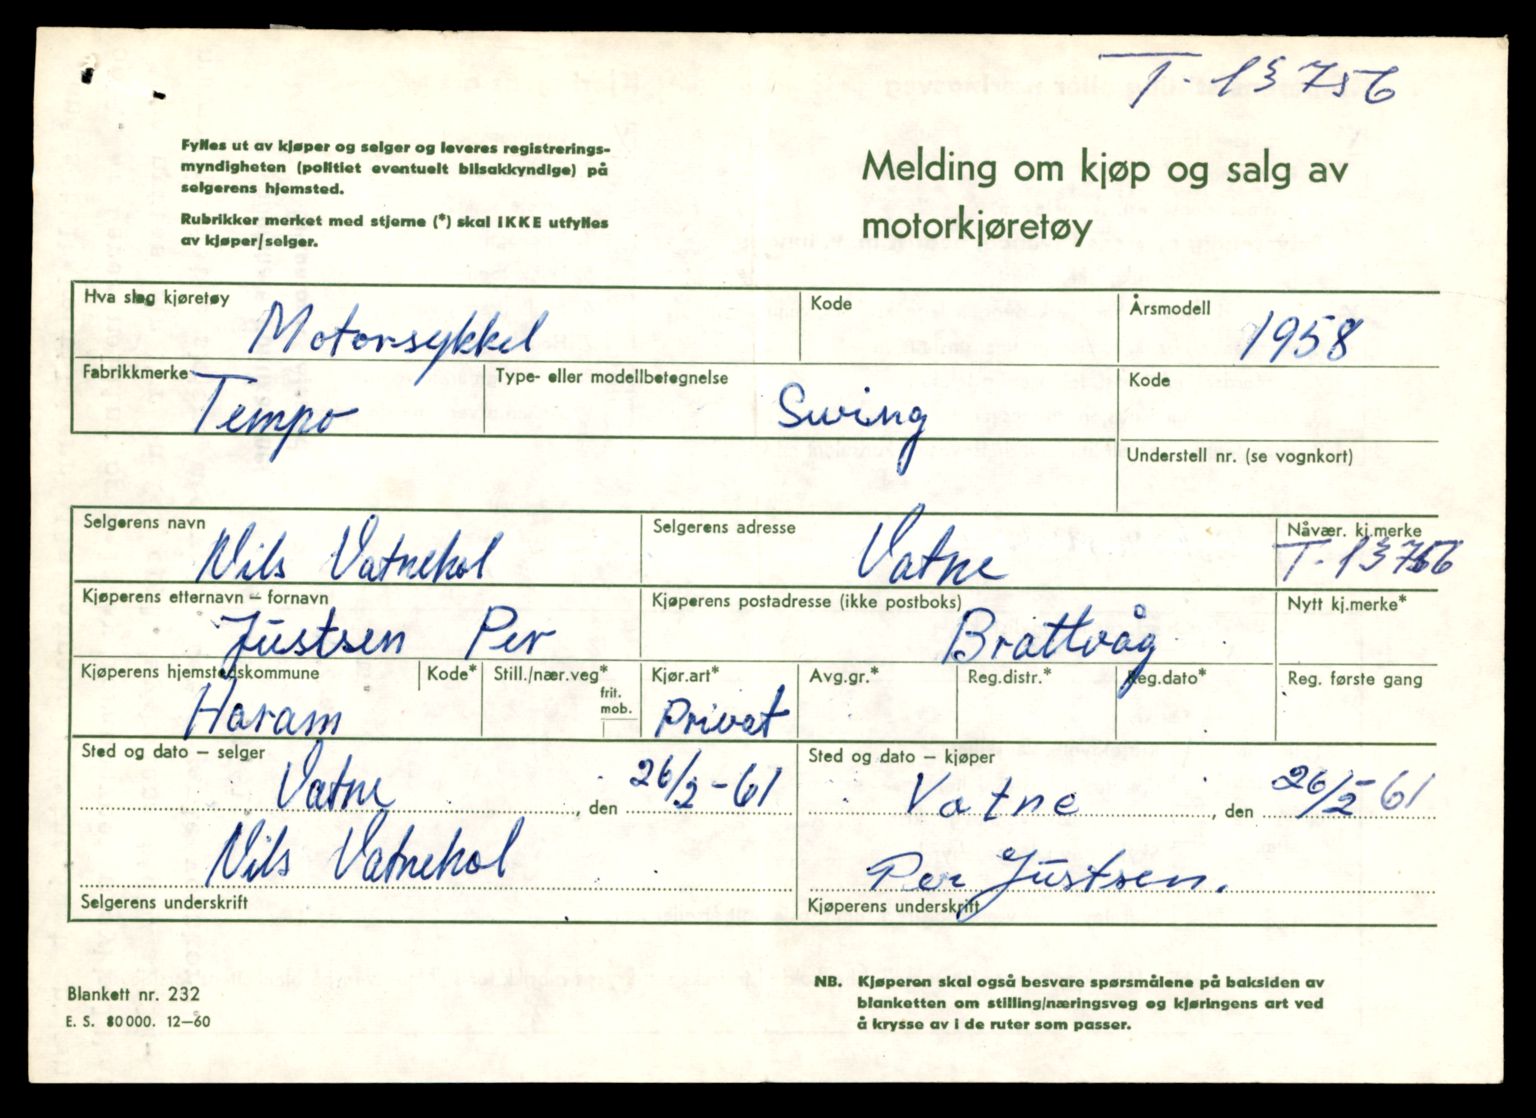 T-13756
Fylles ut av kjøper og selger og leveres registrerings-
myndigheten (politiet eventuelt bilsakkyndige) på
selgerens hjemsted.
Rubrikker merket med stjerne (*) skal IKKE utfylles
av kjøper/selger.
Melding om kjøp og salg av
motorkjøretøy
Hva slag kjøretøy Motorsykkel Kode Årsmodell 1958
Fabrikkmerke Tempo Type- eller modellbetegnelse Swing Kode
Understell nr. (se vognkort)
Selgerens navn Nils Vatnehol Selgerens adresse Vatne Nåvær. kj.merke T-13756
Kjøperens etternavn – fornavn Justsen Per Kjøperens postadresse (ikke postboks) Brattvåg Nytt kj.merke*
Kjøperens hjemstedskommune Haram Kode* Still./nær.veg* frit. mob. Kjør.art* Privat Avg.gr.* Reg.distr.* Reg.dato* Reg. første gang
Sted og dato – selger Vatne, den 26/2-61
Sted og dato – kjøper Vatne, den 26/2-61
Nils Vatnehol
Selgerens underskrift
Per Justsen.
Kjøperens underskrift
Blankett nr. 232
E. S. 80 000. 12–60
NB. Kjøperen skal også besvare spørsmålene på baksiden av
blanketten om stilling/næringsveg og kjøringens art ved
å krysse av i de ruter som passer.